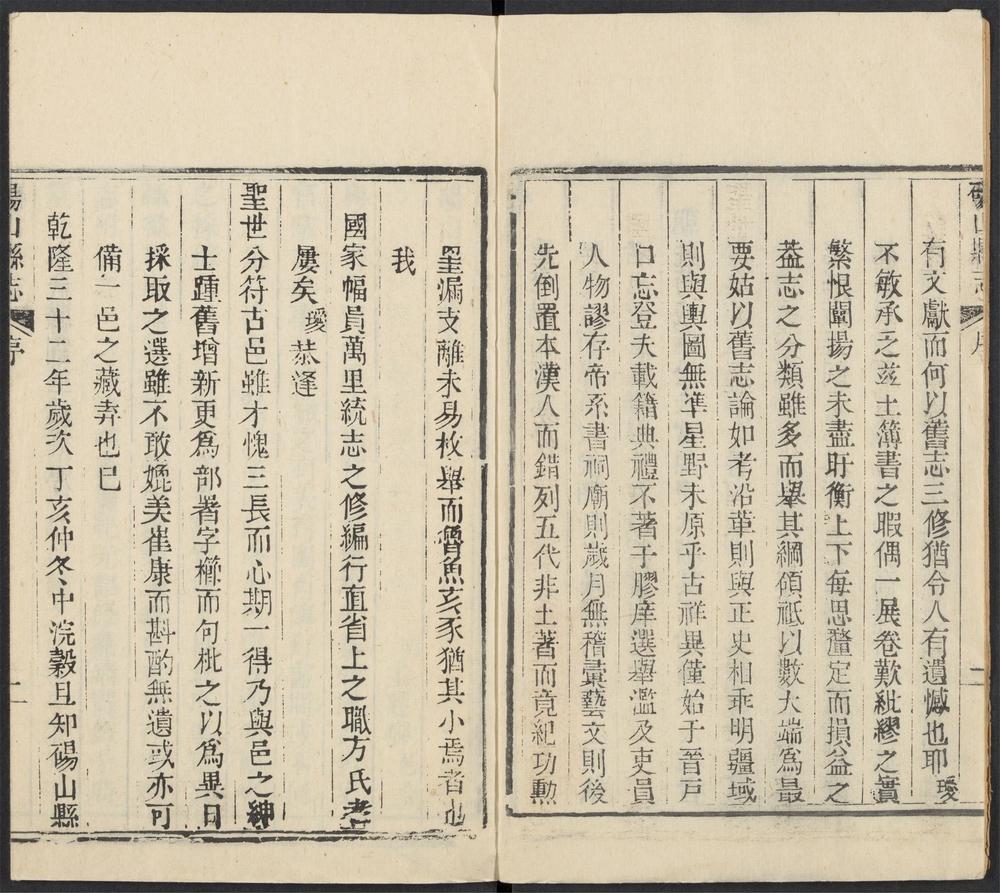 碭山縣志 序 二
有文獻而何以舊志三修猶令人有遺憾也耶瑷
不敏承乏兹土簿書之暇偶一展卷歎紕繆之實
繁恨闡揚之未盡盱衡上下每思釐定而損益之
葢志之分類雖多而舉其綱領祗以數大端爲最
要姑以舊志論如考沿革則與正史相乖明疆域
則與輿圖無凖星野未原乎古祥異僅始于晉戸
口忘登夫載籍典禮不著于膠庠選舉濫及吏員
人物謬存帝系書祠廟則歲月無稽彚藝文則後
先倒置本漢人而錯列五代非土著而竟紀功勲
罣漏支離未易枚舉而魯魚亥豕猶其小焉者也
我
國家幅員萬里統志之修編行直省上之職方氏者
屢矣瑷恭逢
聖世分符古邑雖才愧三長而心期一得乃與邑之紳
士踵舊增新更爲部署字櫛而句枇之以爲異日
採取之選雖不敢媲美崔康而斟酌無遺或亦可
備一邑之藏弆也巳
乾隆三十二年歲次丁亥仲冬中浣穀旦知碭山縣
碭山縣志 序 二